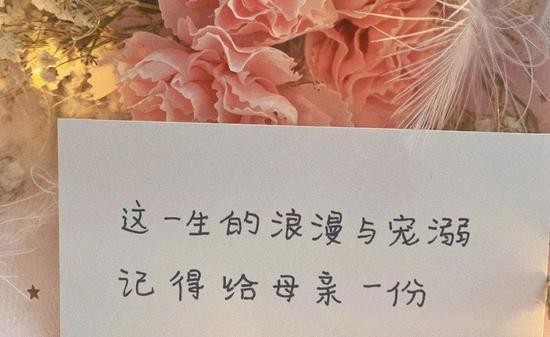 这一生的浪漫与宠溺
记得给母亲一份